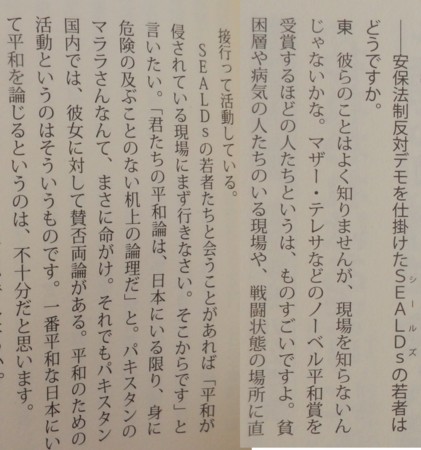 ――安保法制反対デモを仕掛けたSEALDsの若者は
シールズ
どうですか。
東　彼らのことはよく知りませんが、現場を知らないん
じゃないかな。マザー・テレサなどのノーベル平和賞を
受賞するほどの人たちというは、ものすごいですよ。貧
困層や病気の人たちのいる現場や、戦闘状態の場所に直
接行って活動している。
SEALDsの若者たちと会うことがあれば「平和が
侵されている現場にまず行きなさい。そこからです」と
言いたい。「君たちの平和論は、日本にいる限り、身に
危険の及ぶことのない机上の論理だ」と。パキスタンの
マララさんなんて、まさに命がけ。それでもパキスタン
国内では、彼女に対して賛否両論がある。平和のための
活動というのはそういうものです。一番平和な日本にい
て平和を論じるというのは、不十分だと思います。